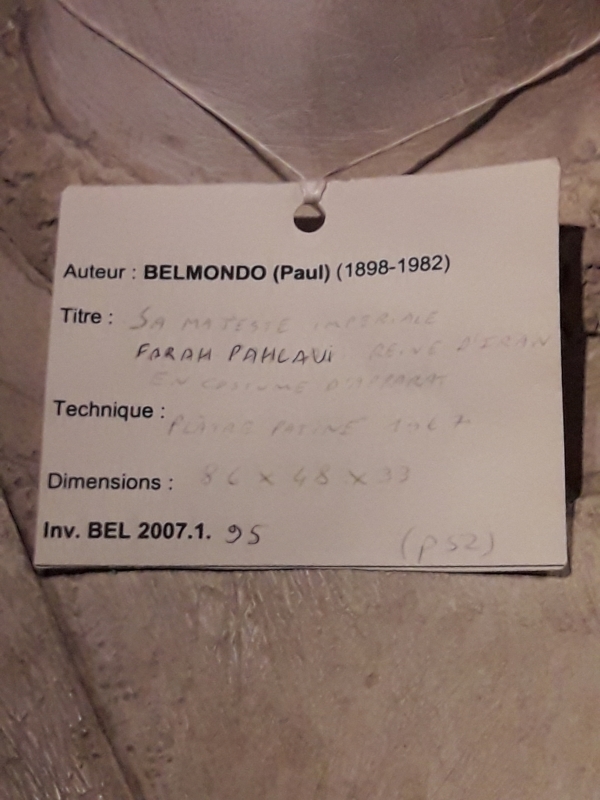 Auteur : BELMONDO (Paul) (1898-1982)
Titre : SA MAJESTE IMPERIALE
FARAH PAHLAVI REINE D'IRAN
EN COSTUME D'APPARAT
Technique : PLATRE PATINÉ 1967
Dimensions : 86 x 48 x 33
Inv. BEL 2007.1. 95
(p52)